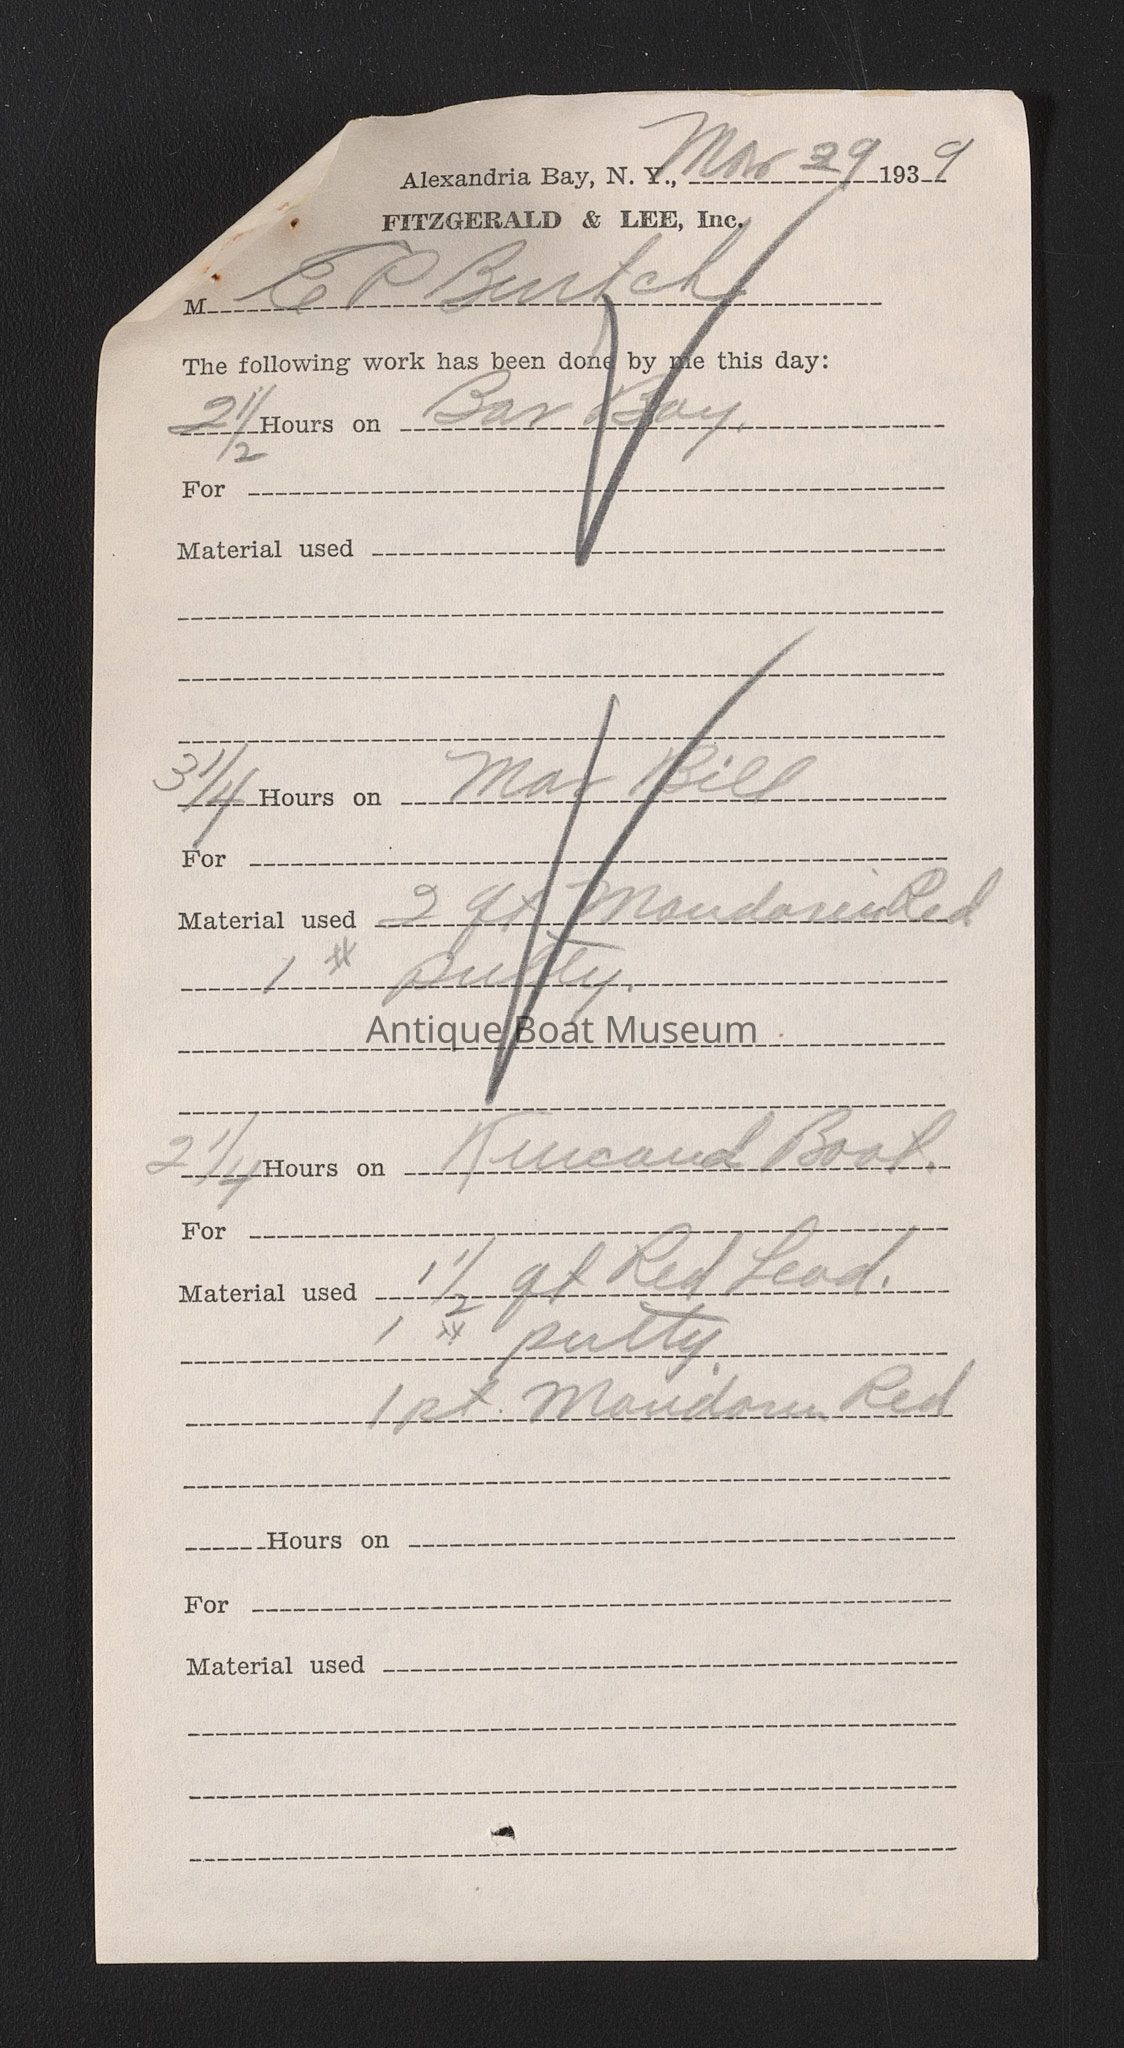 Alexandria Bay, N. Y., Mar 29 1939
FITZGERALD & LEE, Inc.
M E P Burtch
The following work has been done by me this day:
2 1/2 Hours on Bar Bay.
For
Material used
3 1/4 Hours on Mar Bill
For
Material used 2 qt Mandarin Red
1 # putty.
Antique Boat Museum
2 1/4 Hours on Kincaid Boat.
For
Material used 1 1/2 qt Red Lead.
1 # putty.
1 pt. Mandarin Red
Hours on
For
Material used